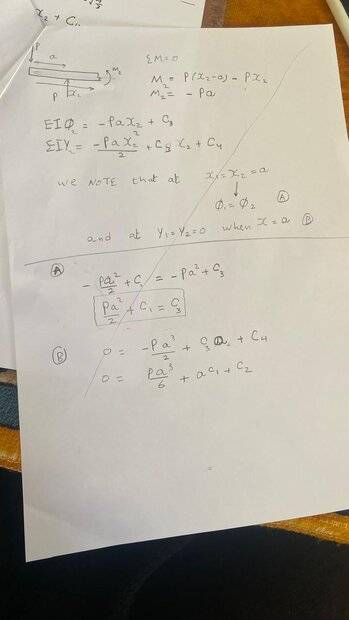 x₂ + C₄
P
a
M₂
P x₂
ΣM=0
M₂ = P(x₂-a) - Px₂
M₂ = - Pa
EIØ₂ = -Pax₂ + C₃
EIY₂ = -Pax₂²/2 + C₃ x₂ + C₄
We NOTE that at x₁=x₂=a
↓
Ø₁=Ø₂ (A)
and at Y₁=Y₂=0 when x=a (B)
(A)
-Pa²/2 + C₁ = -Pa² + C₃
Pa²/2 + C₁ = C₃
(B) 0 = -Pa³/2 + C₃a + C₄
0 = Pa³/6 + aC₁ + C₂